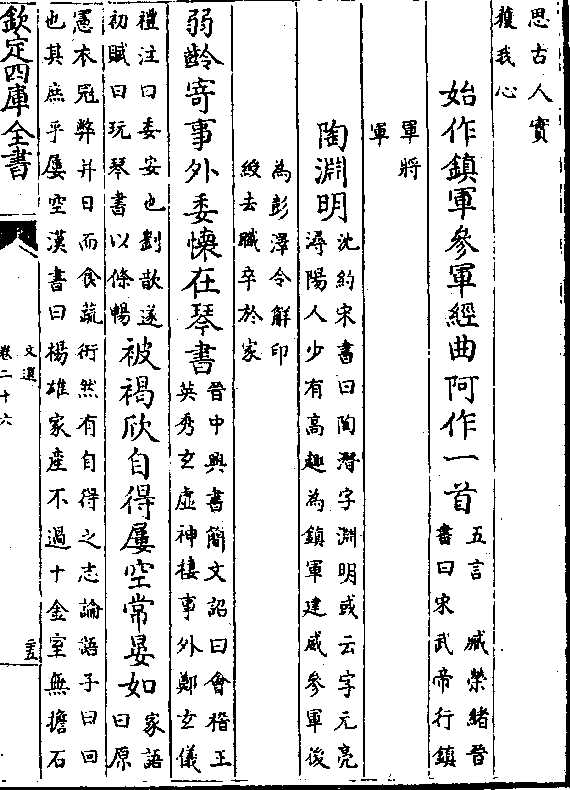 思古人實
穫我心
始作鎮軍參軍經曲阿作一首
五言　臧榮緒晉
書曰宋武帝行鎮
軍將
軍
陶淵明
沈約宋書曰陶潛字淵明或云字元亮
潯陽人少有高趣為鎮軍建威參軍後
為彭澤令解印
綬去職卒於家
弱齡寄事外委懷在琴書
晉中興書簡文詔曰會稽王
英秀玄虛神棲事外鄭玄儀
禮注曰委安也劉歆遂
初賦曰玩琴書以條暢
被褐欣自得屢空常晏如
家語
曰原
憲衣冠弊并日而食蔬衎然有自得之志論語子曰回
也其庶乎屢空漢書曰楊雄家產不過十金室無擔石
欽定四庫全書
文選
卷二十六